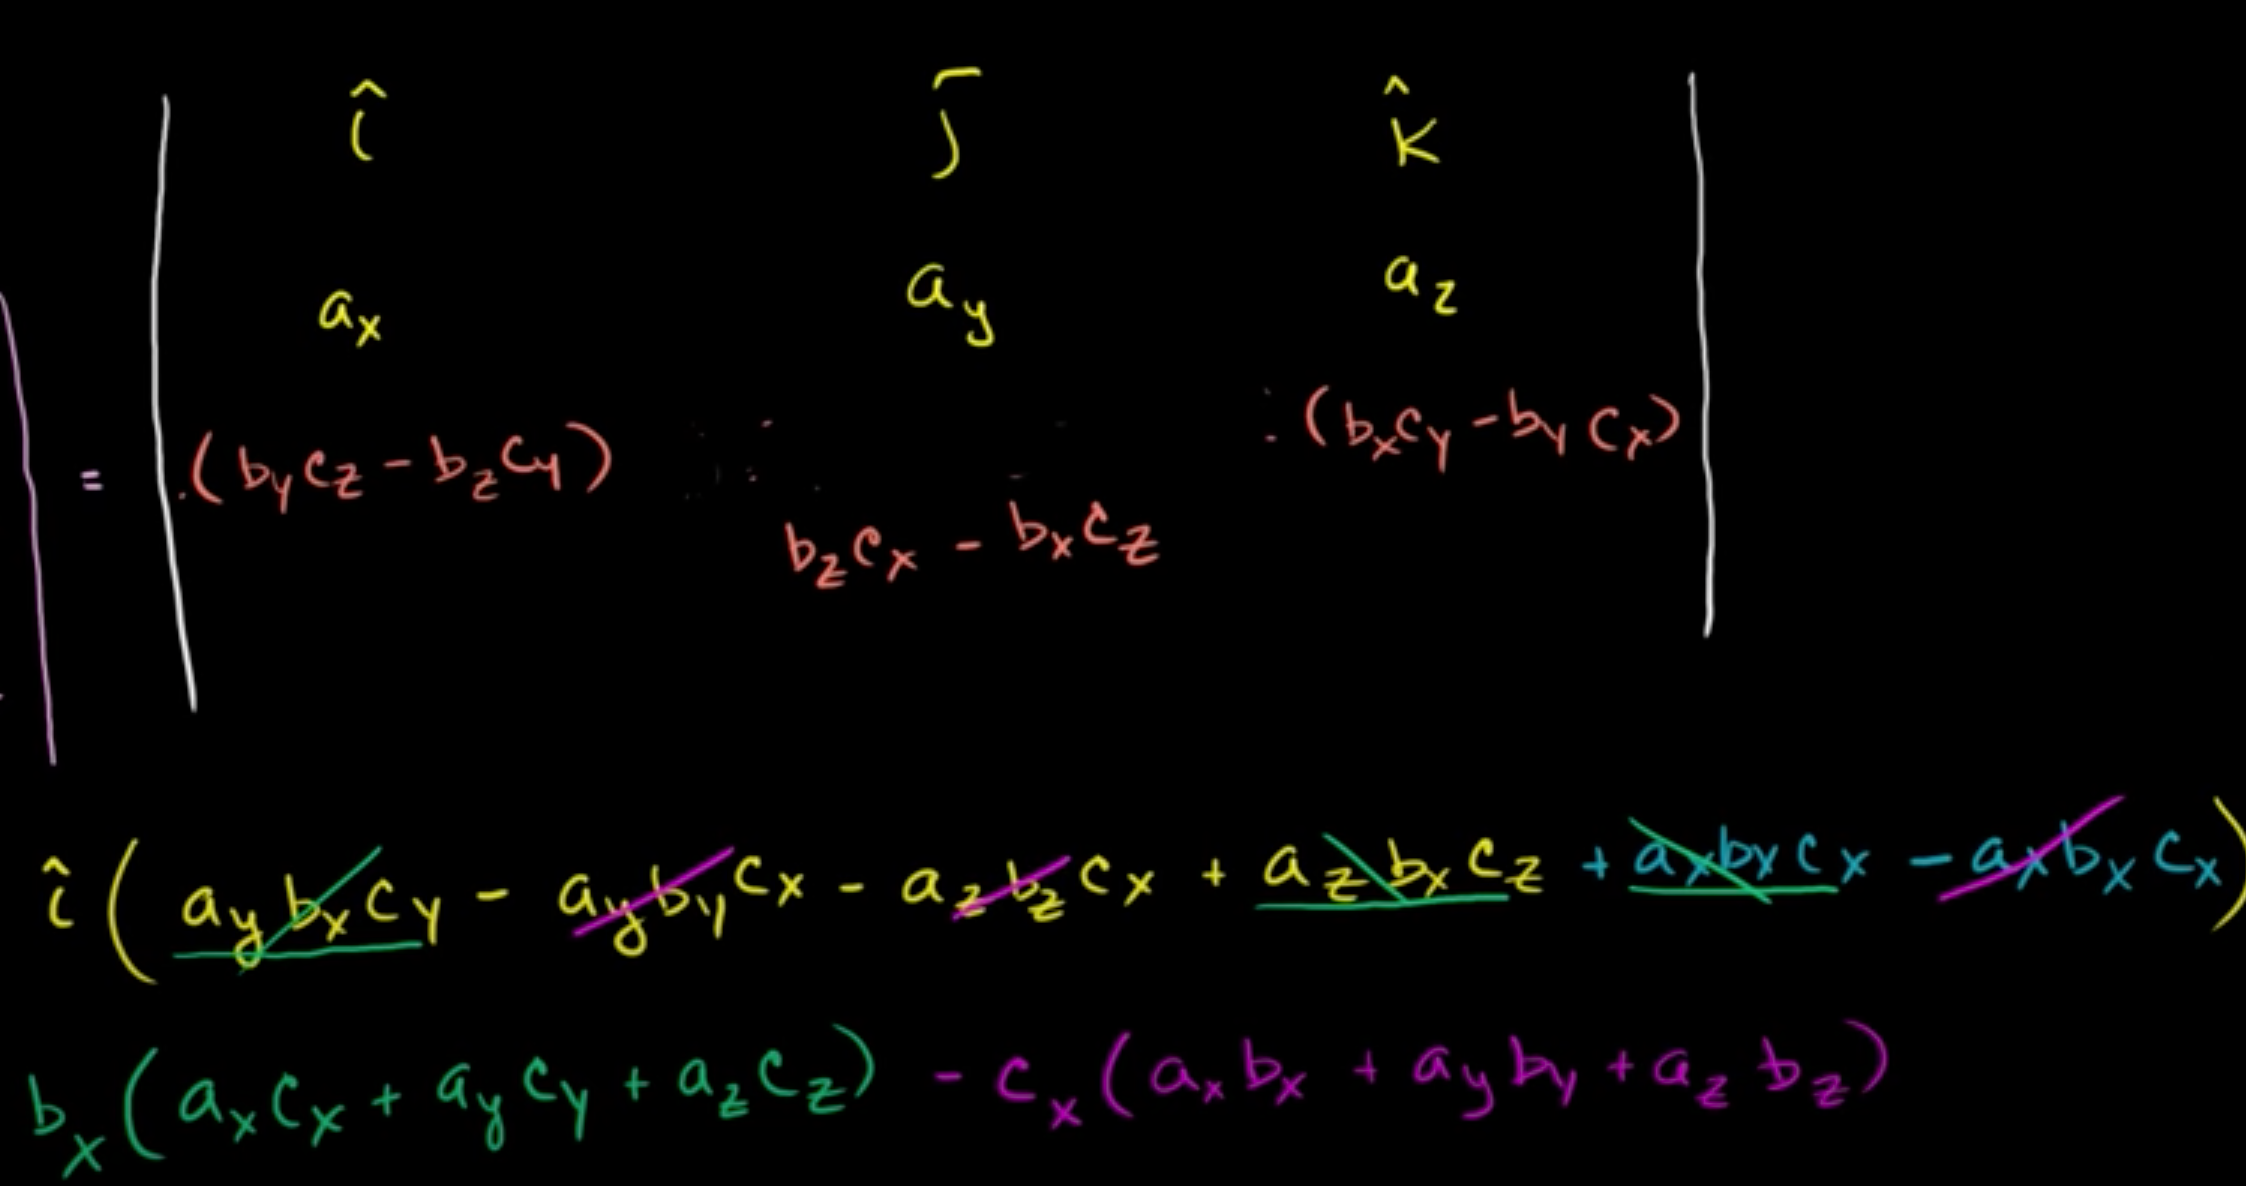 î j̄ k̂
aₓ a_y a_z
= (b_y c_z - b_z c_y) b_z cₓ - bₓ c_z (bₓ c_y - b_y cₓ)
î (a_y bₓ c_y - a_y b_y cₓ - a_z b_z cₓ + a_z bₓ c_z + aₓ bₓ cₓ - aₓ bₓ cₓ)
bₓ (aₓ cₓ + a_y c_y + a_z c_z) - cₓ (aₓ bₓ + a_y b_y + a_z b_z)